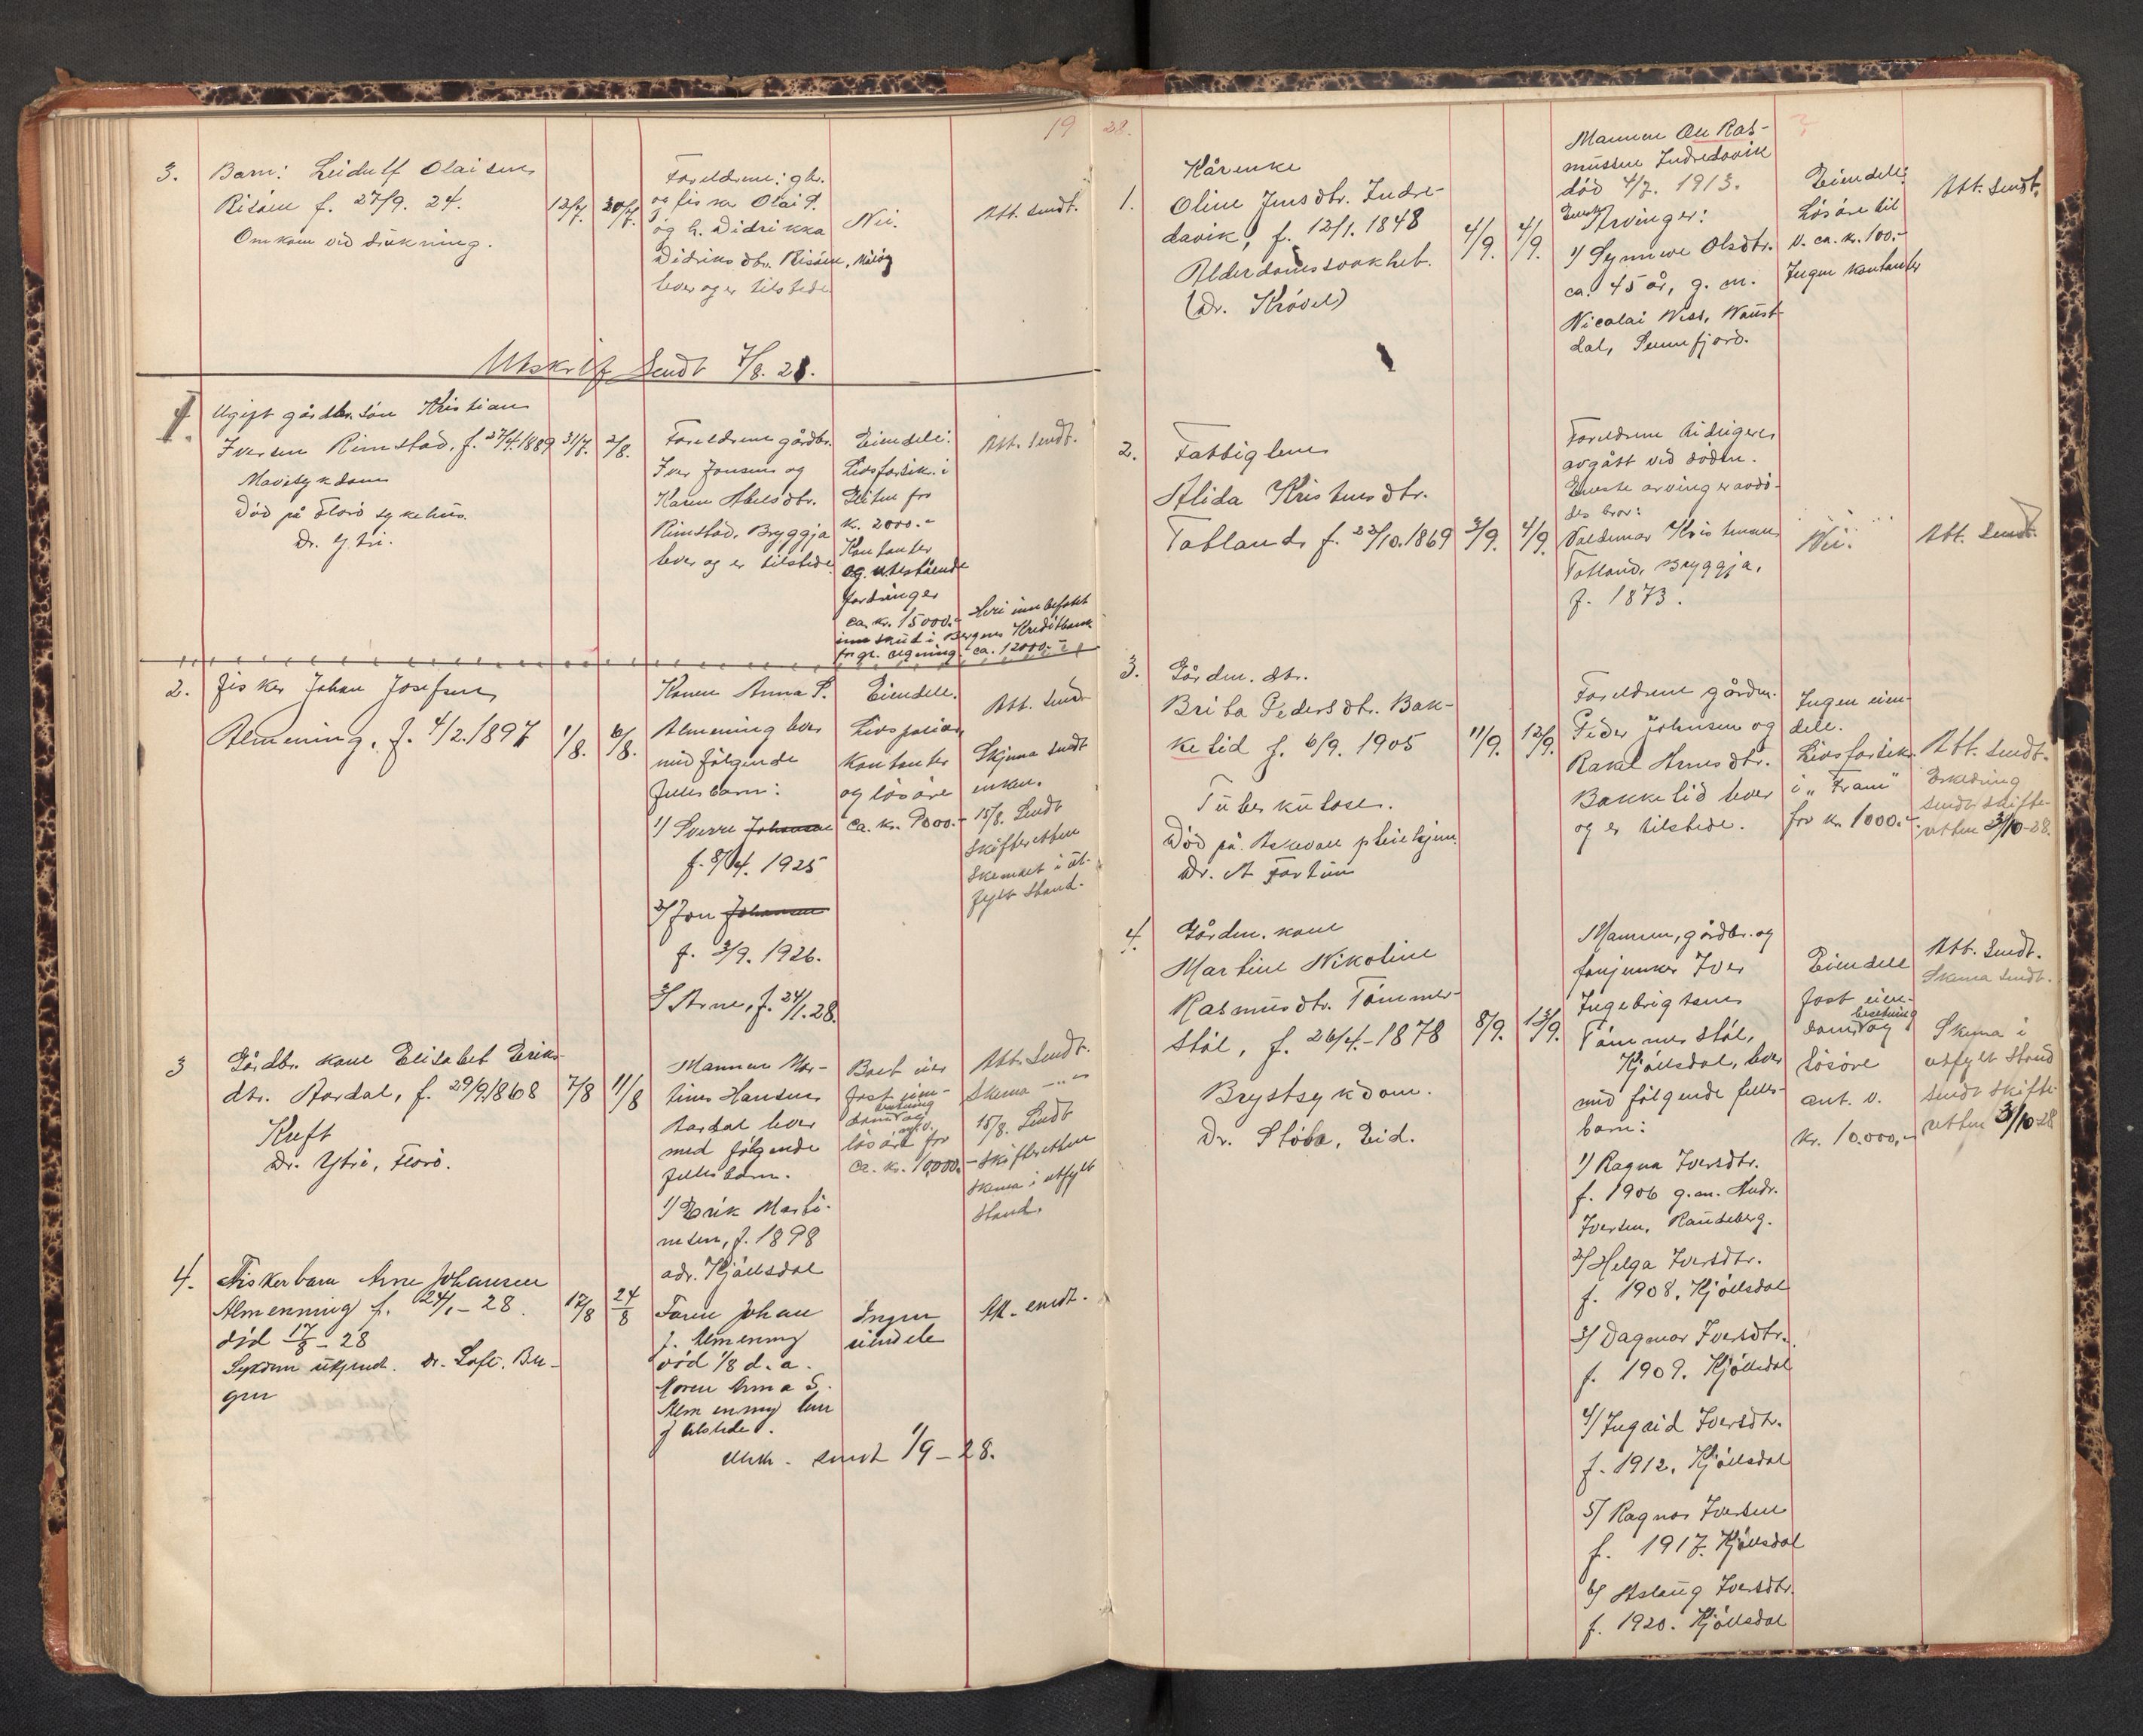 19 28.
3.
Barn: Leidulf Olaisen
Risøen f. 27/9. 24.
Omkom ved drukning.
12/7. 20/7.
Foreldrene: gbr.
og fisker Olai P.
og h. Didrikka
Didriks dtr. Risøen, Måløy
lever og er tilstede
Nei.
Att. sendt.
Utskrift sendt 7/8. 28.
1.
Ugift gårdbr. søn Kristian
Iversen Rimstad, f. 27/4. 1889
Mavesykdom
Død på Florø sykehus.
Dr. Ytri.
31/7. 2/8.
Foreldrene gårdbr.
Iver Jonsen og
Karen Abelsdtr.
Rimstad, Bryggja
lever og er tilstede.
Eiendele:
Livsforsik. i
Gliten for
k. 2000.-
Kontanter
og utestående
fordringer
ca. kr. 15000.- Heri innbefattet
innskud i Bergens Kreditbank
ca. 12000.-
Att. sendt.
2.
Fisker Johan Josefsen
Almening, f. 4/2. 1897
1/8. 6/8.
Konen Anna S.
Almening lever
med følgende
fellesbarn:
1) Sverre Johansen
f. 8/4. 1925
2) Jon Johansen
f. 3/9. 1926.
3) Arne, f. 24/1. 28.
Eiendele.
Livspolise,
kontanter
og løsøre
ca. kr. 9000.-
Att. sendt
Skjema sendt
enken.
15/8. Sendt
skifteretten
skemaet i ut-
fylt stand.
3
Gårdbr. kone Elisabet Eriks-
dtr. Aardal, f. 29/9. 1868
Kreft
Dr. Ytri, Florø.
7/8 11/8
Mannen Mar-
tinus Hansen
Aardal lever
med følgende
fellesbarn.
1) Erik Marti-
nesen, f. 1898
adr. Kjøllsdal
Boet eier
fast eien-
dom, besetning og
løsøre m.v. for
ca. kr. 10,000.-
Att. sendt.
Skema -"-
15/8. Sendt
skifteretten
skema i utfylt
stand.
4.
Fiskerbarn Arne Johansen
Almenning f. 24/1 - 28.
død 17/8 - 28
Sykdom ukjendt. Dr. Loft. Ber-
gen
17/8 24/8
Faren Johan
J. Almening
død 1/8 d. a.
Moren Anna S.
Almenning lever
og tilstede.
Ingen
eiendele
Att. sendt.
Utsk. sendt 1/9 - 28.
1.
Kårenke
Oline Jensdtr. Indre-
davik, f. 12/1. 1848
Alderdomssvakhet.
(Dr. Krövel)
4/9. 4/9.
Mannen Ole Ras-
mussen Indredavik
død 4/7. 1913.
Eneste Arvinger:
1) Synneve Olsdtr.
ca. 45 år, g. m.
Nicolai Ness, Naust-
dal, Sunnfjord.
Eiendele:
Løsøre til
v. ca. kr. 100.-
Ingen kontanter
Att. sendt.
2.
Fattiglem
Alida Kristensdtr.
Totland, f. 23/10. 1869
3/9. 4/9.
Foreldrene tidligere
avgått ved døden.
Eneste arving er avdø-
des bror:
Valdemar Kristensen
Totland, Bryggja,
f. 1873.
Nei.
Att. sendt.
3.
Gårdm. dtr.
Brita Pedersdtr. Bak-
kelid f. 6/9. 1905
Tuberkulose.
Død på Askevoll pleiehjem.
Dr. A Fortun
11/9. 12/9.
Foreldrene gårdm.
Peder Johnsen og
Rakel Arnesdtr.
Bakkelid lever
og er tilstede.
Ingen eien-
dele.
Livsforsikr.
i "Fram"
for kr. 1000.-
Att. sendt.
Erklæring
sendt skifte-
retten 3/10-28.
4.
Gårdm. kone
Martine Nikoline
Rasmusdtr. Tømmer-
støl, f. 26/4. - 1878
Brystsykdom.
Dr. Stöba, Eid.
8/9. 13/9.
Mannen, gårdbr. og
fanejunker Iver
Ingebrigtsen
Tømmerstøl,
Kjøllsdal, lever
med følgende felles-
barn:
1) Ragna Iversdtr.
f. 1906 g.m. Andr.
Iversen, Raudeberg.
2) Helga Iversdtr.
f. 1908, Kjøllsdal
3) Dagmar Iversdtr.
f. 1909. Kjøllsdal
4) Ingrid Iversdtr.
f. 1912, Kjøllsdal
5) Ragnar Iversen
f. 1917. Kjøllsdal
6) Aslaug Iversdtr.
f. 1920. Kjøllsdal
Eiendele
fast eien-
dom, besetning og
løsøre
ant. v.
kr. 10.000,-
Att. sendt.
Skema sendt.
Skema i
utfylt stand
sendt skifte-
retten 3/10-28